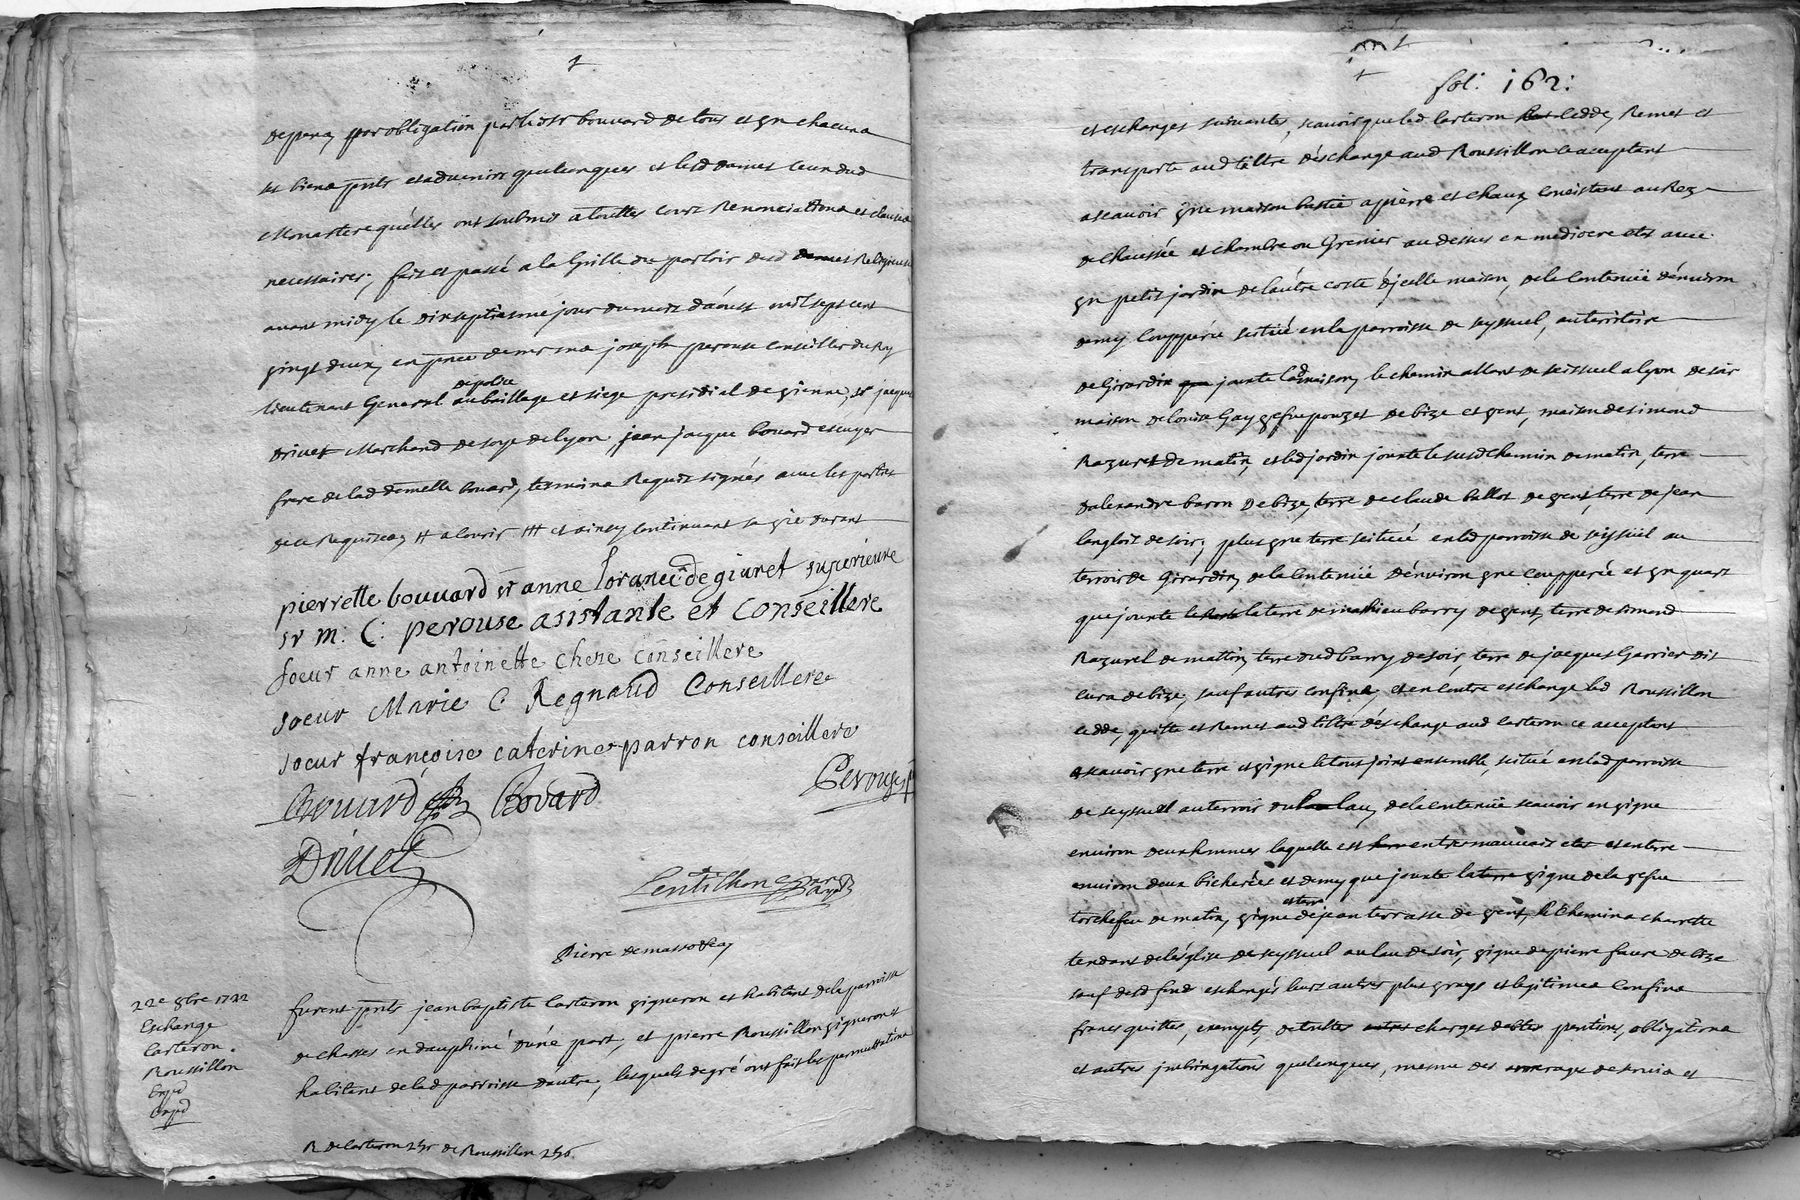 depens, par obligation par led sr bouvard de tous et un chacuns
ses biens pnts et advenirs quelconques et lesd dames ceux dud
Monastere qu'elles ont soubmis a touttes cours Renonciations et clauses
necessaires, fait et passé a la Grille du parloir desd dames Religieuses
avant midy le dix septiesme jour du mois d'aoust mil sept cent
vingt deux, en pnce de mr me joseph perouse conseiller du Roy
Lieutenant General de police au bailliage et siege presidial de vienne, sr jacques
Drivet Marchand de soye de lyon, jean jacque bovard escuyer
frere de lad demelle bouard, tesmoins Requis signés avec les parties
de ce Requises, et ainsy continuant sa vie durant
pierrette bouvard sr anne de givret superieure
sr m: C: perouse asistante et Conseillere
soeur anne antoinette cheze conseillere
soeur Marie C Regnaud Conseillere
soeur françoise caterine parron conseillere
Bouard Bovard Perouse
Drivet
Lentilhon
Pierre
22e 9bre 1722
Eschange
Carteron
Roussillon
Expd
Expd
furent pnts jean baptiste Carteron vigneron et habitant de la parroisse
de chasses en dauphiné d'une part, et pierre Roussillon vigneron et
habitant de lad parroisse d'autre, lesquels de gré ont fait les permuttations
R de Carteron de Roussillon
fol. 162:
et eschanges suivantes, scavoir que led Carteron cedde, Remet et
transporte aud tiltre d'eschange aud Roussillon ce acceptant
ascavoir une maison bastie a pierre et chaux consistant au Rez
de chaussée et chambre ou Grenier au dessus en mediocre etat avec
un petit jardin de l'autre costé d'icelle maison, de la contenüe d'environ
demy coupperée scitué en la parroisse de seyssuel, au territoire
de Girardin jouxte lad maison, le chemin allant de seissuel a lyon de soir
maison de louise Gay vefve pouzet de bize et vent, maison de simond
Razurel de matin, et led jardin jouxte le susd chemin de matin, terre
d'alexandre baron de bize, terre de claude ballot de vent, terre de jean
langlois de soir; plus une terre scituée en lad parroisse de seissuel au
terroir de Girardin, de la contenüe d'environ une coupperée et un quart
que jouxte la terre de mathieu barry de vent, terre de simond
Razurel de mattin, terre dud barry de soir, terre de jacques Garnier dit
cura de bize, sauf autres confins, et en contre eschange led Roussillon
cedde, quitte et Remet aud tiltre d'eschange aud Carteron ce acceptant
ascavoir une terre et vigne le tout joint ensemble, scitué en lad parroisse
de seyssuel au terroir du lau, de la contenüe scavoir en vigne
environ deux hommes laquelle est en tres mauvais etat et en terre
environ deux bicherées et demy que jouxte la vigne de la vefve
torchefeu de matin, vigne et terre de jean terrasse de vent, le chemin a charrette
tendant de l'eglise de seyssuel au lau de soir, vigne de pierre faure de bize
sauf desd fonds eschangés leurs autres plus vrays et legitimes confins
francs quittes, exempts, de touttes charges debtes pentions, obligations
et autres jmbrigations quelconques, mesme des arrerages de servis et